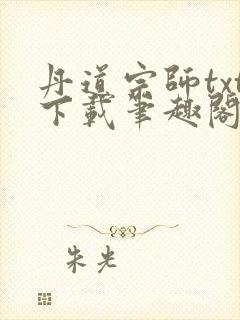 丹道宗師txt
下載筆趣閣
朱光